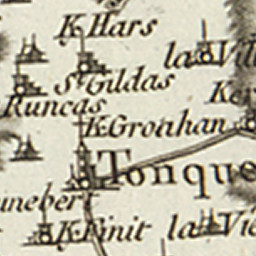 K. Hars
la Vill
St Gildas
Ker
Runcas
K. Groahan
Tonque
unebert
K. Finit
la Vie